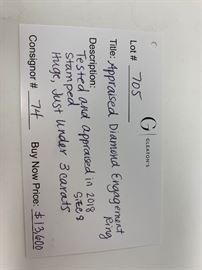 Lot # 705
G
GLEATON'S
Title: Appraised Diamond Engagement
Ring
Description:
Tested and appraised in 2018
Stamped Size 8
Huge, Just under 3 carats
Consignor # 74 Buy Now Price: $13,600